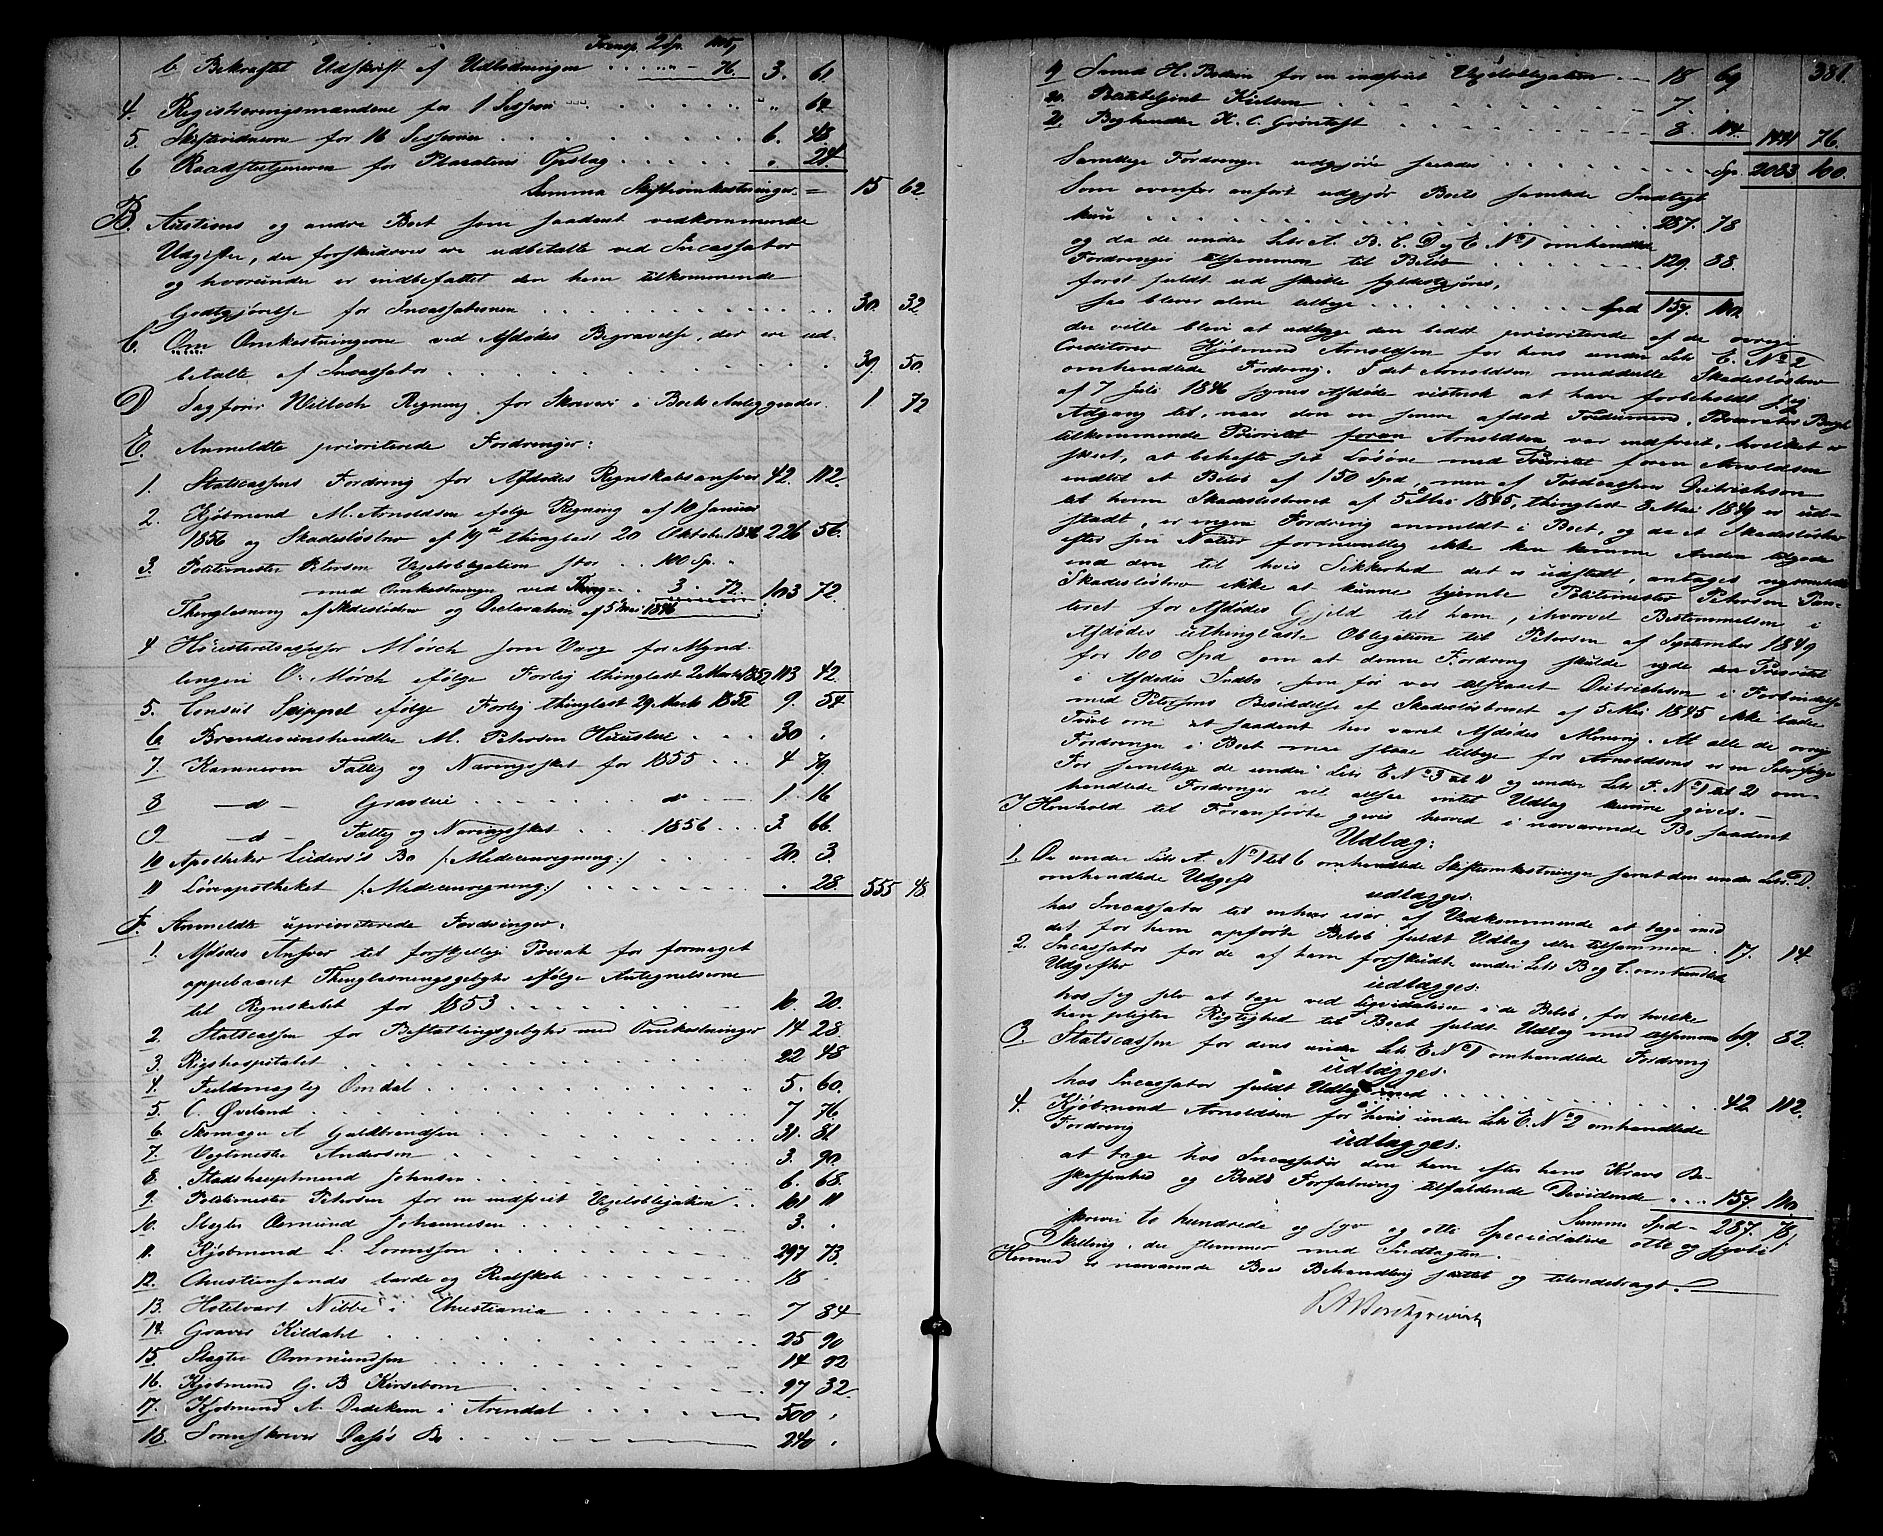 Transp. 2 Sp. 105
b. Bekræftet Udskrift af Udlodningen . . . . „ - 76. 3. 61
4. Registreringsmændene for 1 Session . . . „ 64.
5. Skiftevidnerne for 16 Sessioner . . . 6. 48.
6 Raadstuetjeneren for Placatens Opslag . . . „ 24
Summa Skifteomkostninger = 15 62
B. Auctions og andre Boet som saadant vedkommende
Udgifter, der forskudsvis ere udbetalte ved Incassator
og hvorunder er indbefattet den ham tilkommende
Godtgjörelse for Incassationen . . . 30. 32
C. Om Omkostningerne ved Afdödes Begravelse, der ere ud-
betalte af Incassator . . . 39. 50.
D Sagförer Willoch Regning for Skriveri i Boets Anliggender. 1 72
E. Anmeldte prioriterede Fordringer:
1. Statscassens Fordring for Afdödes Regnskabsansvar 42. 112.
2. Kjöbmand M. Arnoldsen efölge Regning af 10 Januar
1856 og Skadeslösbrev af 19de thinglæst 20 Oktober 1846 226 56.
3. Politimester Petersen Vexelobligation stor . . 100 Sp. „
med Omkostninger ved Thing- . 3. 72. 103 72.
Thinglæsning af Skadeslösbrev og Declaration af 5 Mai 1846
4 Höiesteretsassessor Mörch som Værge for Mynd-
lingen O. Mörch efölge Forlig thinglæst 2 Marts 1852 113 42.
5. Consul Seippel efölge Forlig thinglæst 29 Marts 1852 9. 54
6. Brændeviinshandler M. Petersen Huusleie . . . 30 „
7. Kæmneren Fattig og Næringsskat for 1855 . . . 4 79.
8 — d — Gravleie . . . d° . — 1. 16
9 — d — Fattig og Næringsskat . . . 1856 . . . 3. 66.
10 Apotheker Lüders's Bo /: Medicinregning :/ . . . 20. 3.
11 Löveapotheket /: Medicinregning :/ . . . „ 28. 555 48.
F. Anmeldte uprioriterede Fordringer:
1. Afdödes Ansvar til forskjellige Private for formeget
oppebaaret Thinglæsningsgebyhr efölge Antegnelserne
til Regnskabet for 1853 . . . 10. 20.
2. Statscassen for Bestallingsgebyhr med Omkostninger 14 28.
3. Rigshospitalet . . . 22 48
4. Fuldmægtig Omdal . . . 5. 60.
5. C. Öveland . . . 7 76
6. Skomager A Guldbrandsen . . . 31. 81
7. Vegtmester Andersen . . . 3. 90.
8. Stadshauptmand Johnsen . . . 6. 68.
9. Politimester Petersen for en indfriet Vexelobligation . . 101 11
10. Slagter Osmund Johannesen . . . 3. „
11. Kjöbmand L. Lorentzen . . . 297 73.
12. Christiansands lærde og Realskole . . . 18 „
13. Hotelvært Nibbe i Christiania . . . 7 84
14. Graver Kildahl . . . 25 90
15. Slagter Ommundsen . . . 14 92
16. Kjöbmand G. B Kirsebom . . . 97 32.
17. Kjöbmand A. Dedekam i Arendal . . . 500 „
18. Sorenskriver Dahl's Bo . . . 240 „
381.
19 Smed H. Bodin for en indfriet Vexelobligation . . 18 69
20. Nielsen . . . 7. „
21 Boghandler H. C. Gröntoft . . . 8 114. 1441 76.
Samtlige Fordringer udgjöre saaledes . . . Sp. 2083 100.
Som ovenfor anfört udgjör Boets samlede Indtægt
kun . . . 287. 78
og da de under Litr A. B. C. D og E No 1 omhandlede
Fordringer tilsammen til Belöb . . . 129. 88.
först fuldt ud skulle fyldestgjöres,
saa bliver alene tilbage . . . Spd 157. 110.
der ville blive at udlægge den bedst prioriterede af de övrige
Creditorer Kjöbmand Arnoldsen for hans under Litr E. No 2
omhandlede Fordring. I det Arnoldsen meddeelte Skadeslösbrev
af 7 Juli 1846 synes Afdöde vistnok at have forbeholdt sig
Adgang til, naar den en senere afdöd Formand,
tilkommende Prioritet foran Arnoldsen var indfriet, hvilket er
skeet, at behefte sit Lösöre med Prioritet foran Arnoldsen
indtil et Belöb af 150 Spd, men af Toldcasserer Deitrichson
til hvem Skadeslösbrevet af 5 Mai 1845, thinglæst 3 Mai 1849 er ud-
stedt, er ingen Fordring anmeldt i Boet, og da et Skadeslösbrev
efter sin Natur formeentlig ikke kan komme Anden tilgode
end den til hvis Sikkerhed det er udstedt, antages ogsaa
Skadeslösbrev ikke at kunne hjemle Politimester Petersen Pan-
teret for Afdödes Gjeld til ham, ihvorvel Bestemmelsen i
Afdödes uthinglæste Obligation til Petersen af September 1849
for 100 Spd om at denne Fordring skulde nyde den Prioritet
i Afdödes Indbo, som för var tilstaaet Deitrichson i Forbindelse
med Petersens Besiddelse af Skadeslösbrevet af 5 Mai 1845 ikke lader
Tvivl om at saadant har været Afdödes Mening. At alle de övrige
Fordringer i Boet maa staae tilbage for Arnoldsens er en Selvfölge
For samtlige de under Litr E No 3 til 11 og under Litr F. No 1 til 21 om-
handlede Fordringer vil altsaa intet Udlæg kunne gives. —
I Henhold til Foranförte gives herved i nærværende Bo saadant
Udlæg:
1. De under Litr A. No 1 til 6 omhandlede Skifteomkostninger samt den under Litr. D.
omhandlede Udgift
udlægges:
hos Incassator til enhver især af Vedkommende at tage imod
det for ham opförte Belöb fuldt Udlæg eller tilsammen . 17. 14.
2. Incassator for de af ham forskudte under Litr B og C. omhandlede
Udgifter
udlægges:
hos sig selv at tage ved Liqvidation i de Belöb, for hvilke
han pligter Rigtighed til Boet fuldt Udlæg med tilsammen 69. 82.
3. Statscassen for dens under Litr E No 1 omhandlede Fordring
udlægges.
hos Incassator fuldt Udlæg med . . . 42. 112.
4. Kjöbmand Arnoldsen for hans under Litr E. No 2 omhandlede
Fordring
udlægges:
at tage hos Incassator den ham efter hans Kravs Be-
skaffenhed og Boets Forfatning tilfaldende Dividende . . . 157. 110.
Summa Spd = 287. 78.
skrevi to hundrede og syv og otti Speciedalere otte og syvti
Skilling, der stemmer med Indtægten.
Hermed er nærværende Boes Behandling sluttet og tilendebragt. —
Borchgrevink